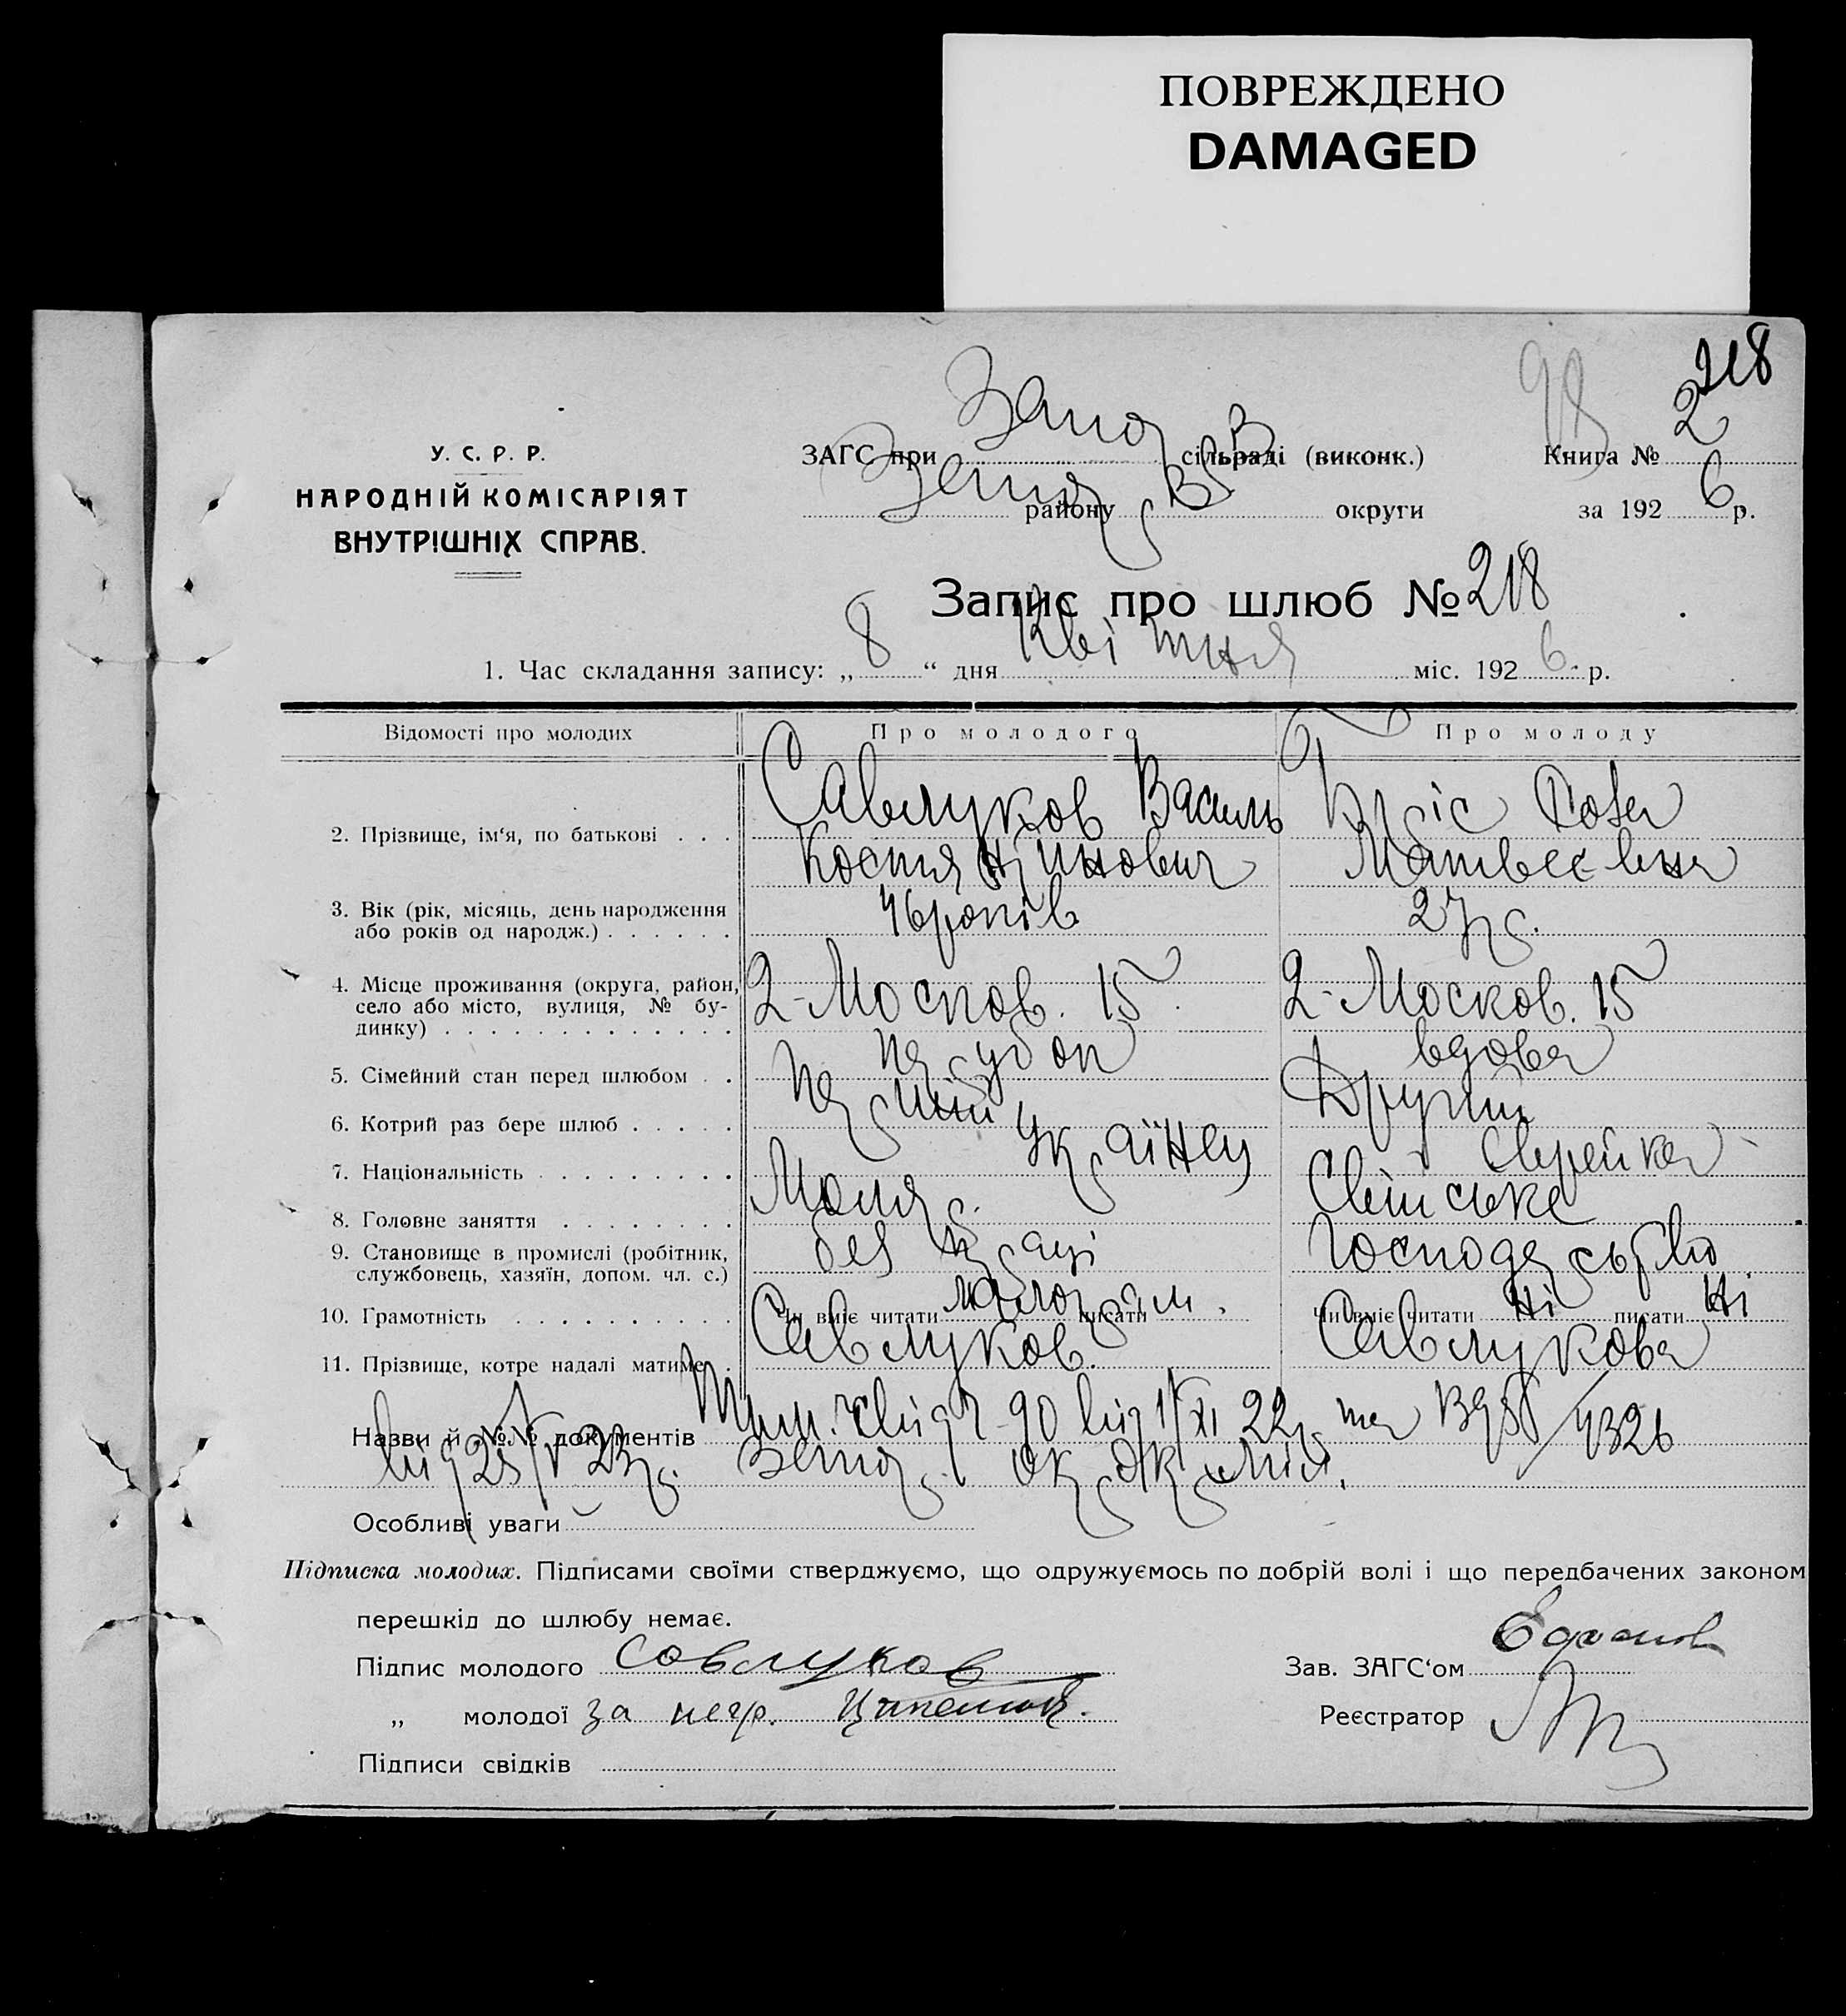 ПОВРЕЖДЕНО
DAMAGED
218
98
У. С. Р. Р.
НАРОДНІЙ КОМІСАРІЯТ
ВНУТРІШНІХ СПРАВ.
ЗАГС при сільраді (виконк.) Книга № 2
району округи за 1926 р.
Запис про шлюб № 218
1. Час складання запису: „8“ дня Квітня міс. 1926 р.
Відомості про молодих Про молодого Про молоду
2. Прізвище, ім‘я, по батькові . . . Савлуков Василь
Костянтинович Матвеевна
3. Вік (рік, місяць, день народження
або років од народж.) . . . . . . 46 років 27 р.
4. Місце проживання (округа, район,
село або місто, вулиця, № бу-
динку) . . . . . . . . . . . . . 2-Москов. 15 2-Москов. 15
5. Сімейний стан перед шлюбом . . парубок вдова
6. Котрий раз бере шлюб . . . . . перший Другий
7. Національність . . . . . . . . . Українец Єврейка
8. Головне заняття . . . . . . . . Маляр. Сільське
9. Становище в промислі (робітник,
службовець, хазяїн, допом. чл. с.) без праці господарство
10. Грамотність . . . . . . . . . . Чи вміє читати малограм. писати Чи вміє читати ні писати ні
11. Прізвище, котре надалі матиме . Савлуков. Савлукова
Назви й №№ документів 90 від 1/XI 22 р. та 4326
від 25/V 23 р.
Особливі уваги
Підписка молодих. Підписами своїми стверджуємо, що одружуємось по добрій волі і що передбачених законом
перешкід до шлюбу немає.
Підпис молодого Савлуков Зав. ЗАГС‘ом
„ молодої за негр. Реєстратор
Підписи свідків